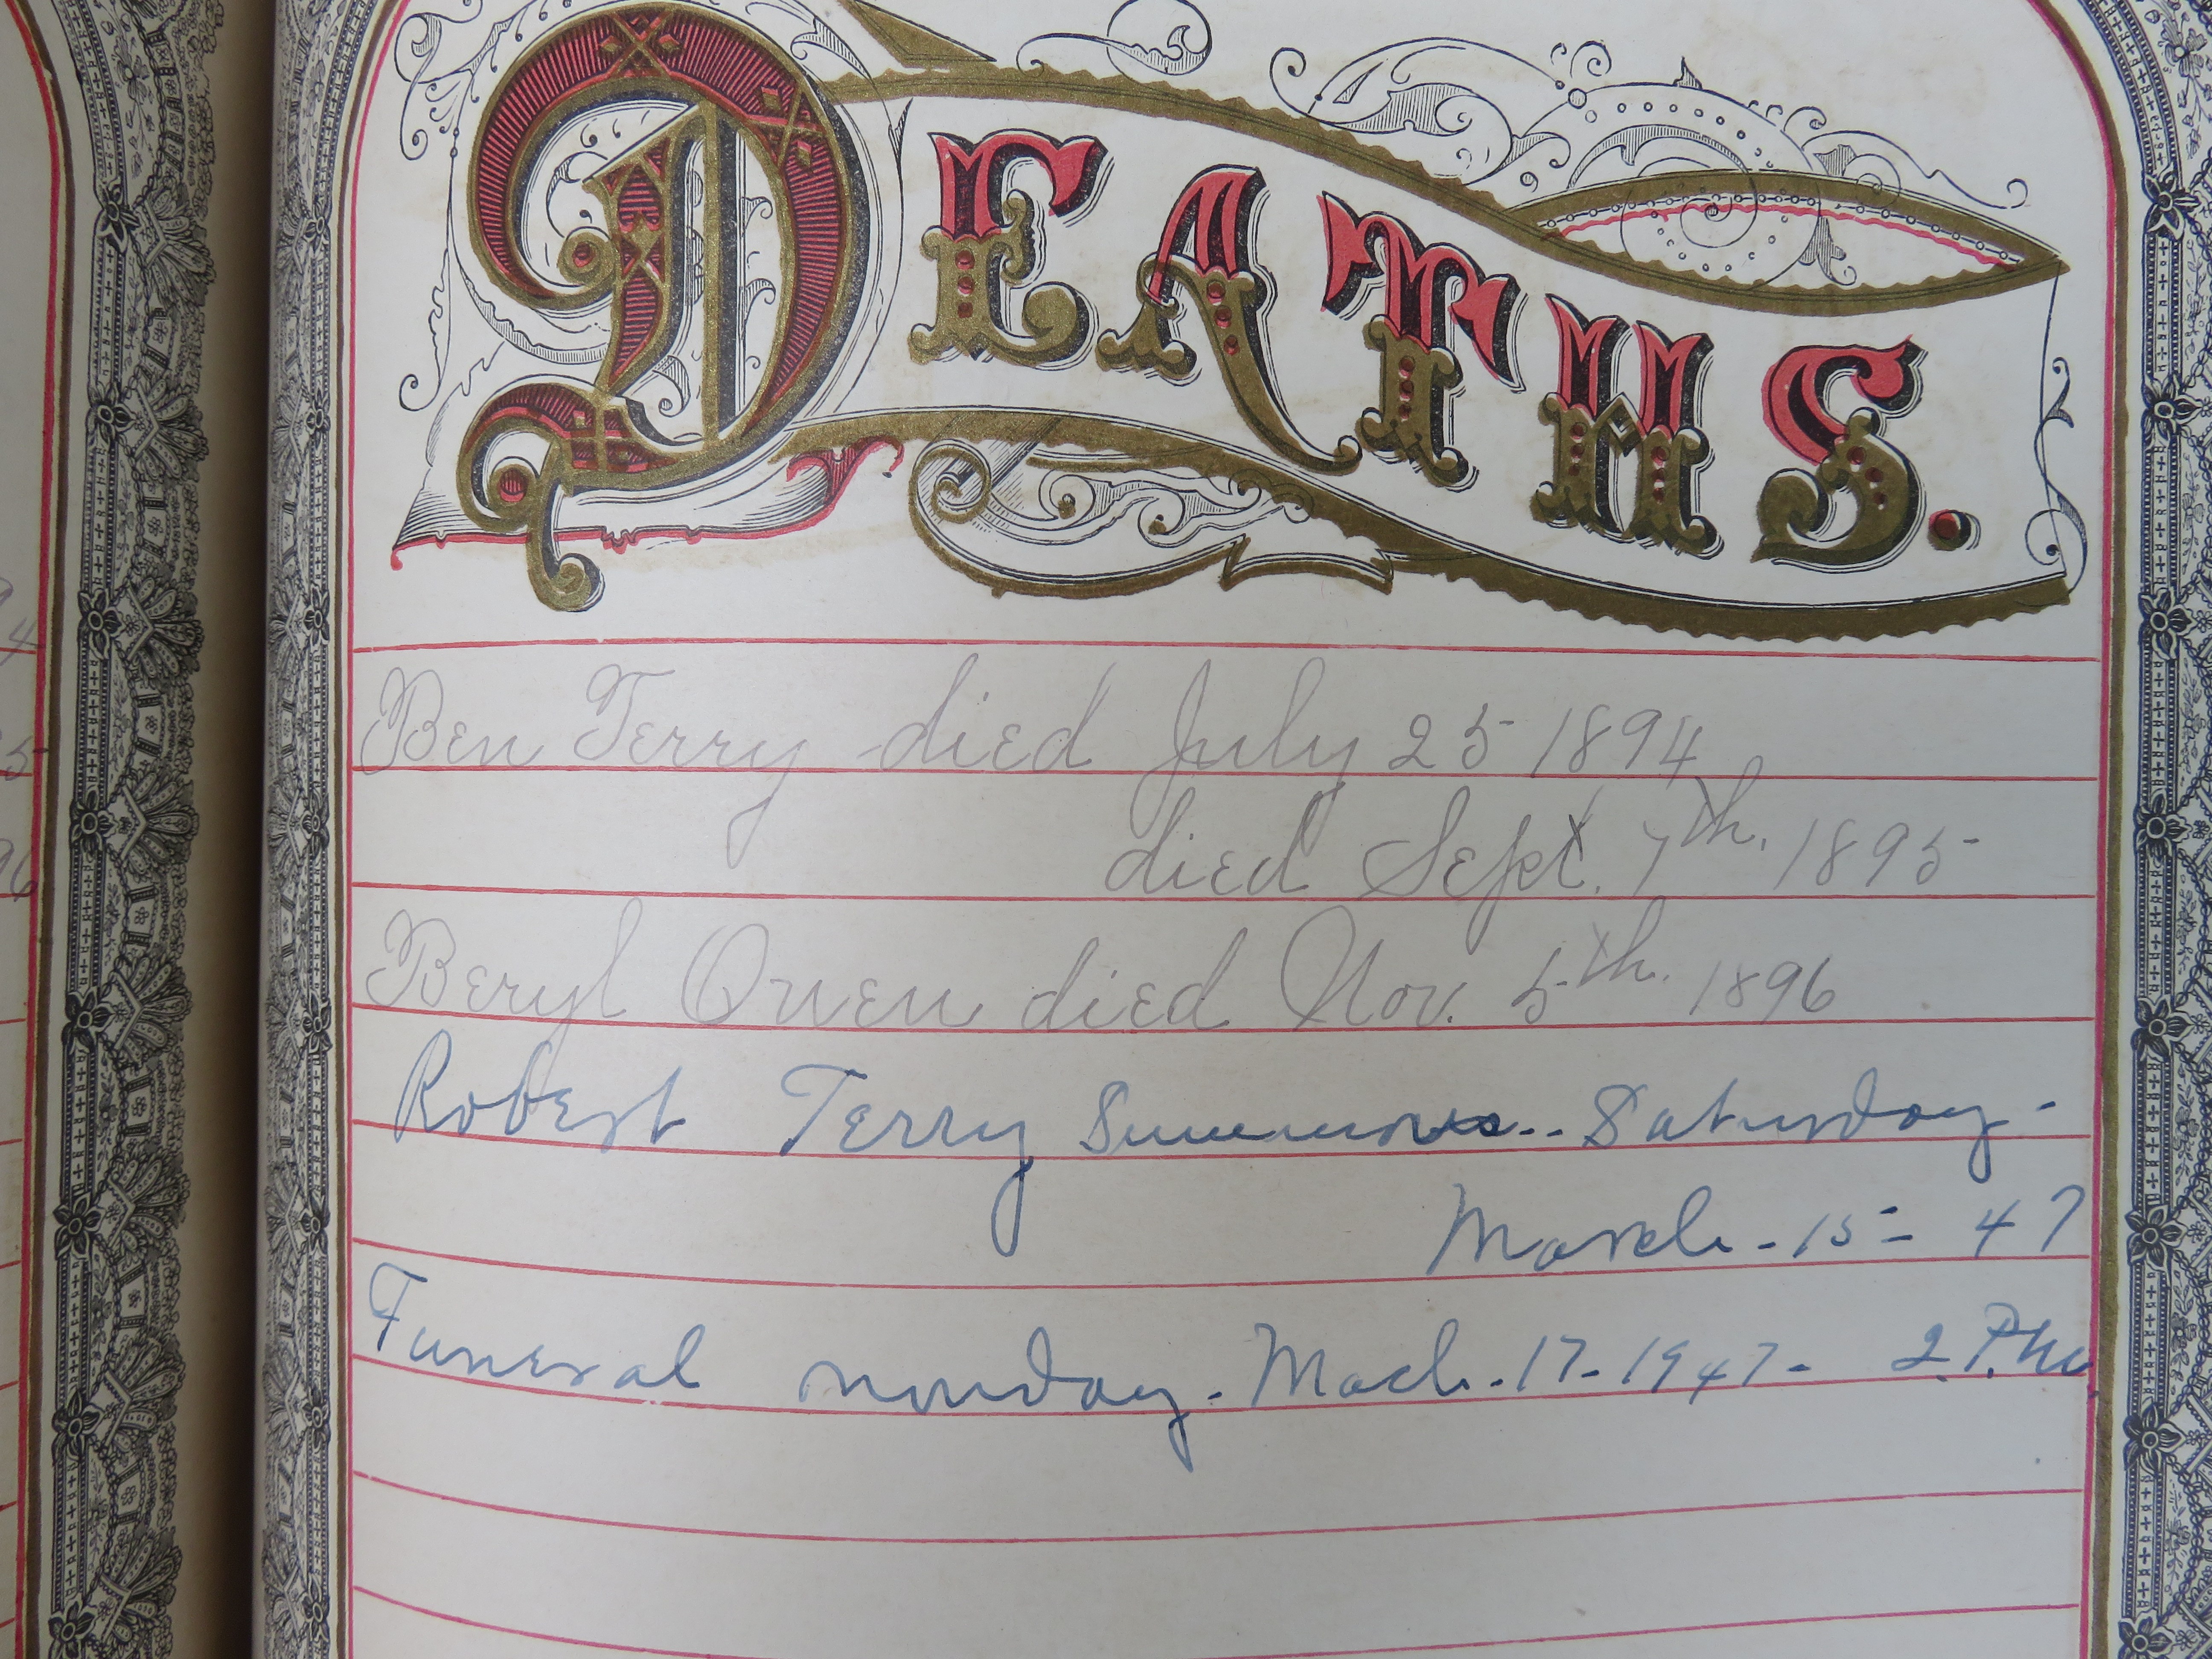 DEATHS.
Ben Terry died July 25 1894
died Sept. 7th. 1895
Beryl Owen died Nov. 5th. 1896
Robert Terry Summons.. Saturday -
March - 15 - 47
Funeral monday - Mach - 17 - 1947 - 2. P.M.